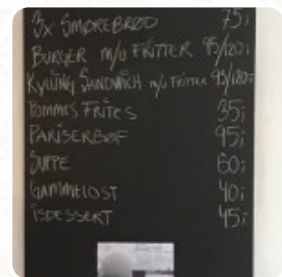 3x SMØREBRØD 75;
BURGER m/u FRITTER 95/120;
KYLLING SANDWICH m/u FRITTER 95/120;
POMMES FRITES 35;
PARISERBØF 95;
SUPPE 60;
GAMMELOST 40;
ISDESSERT 45;